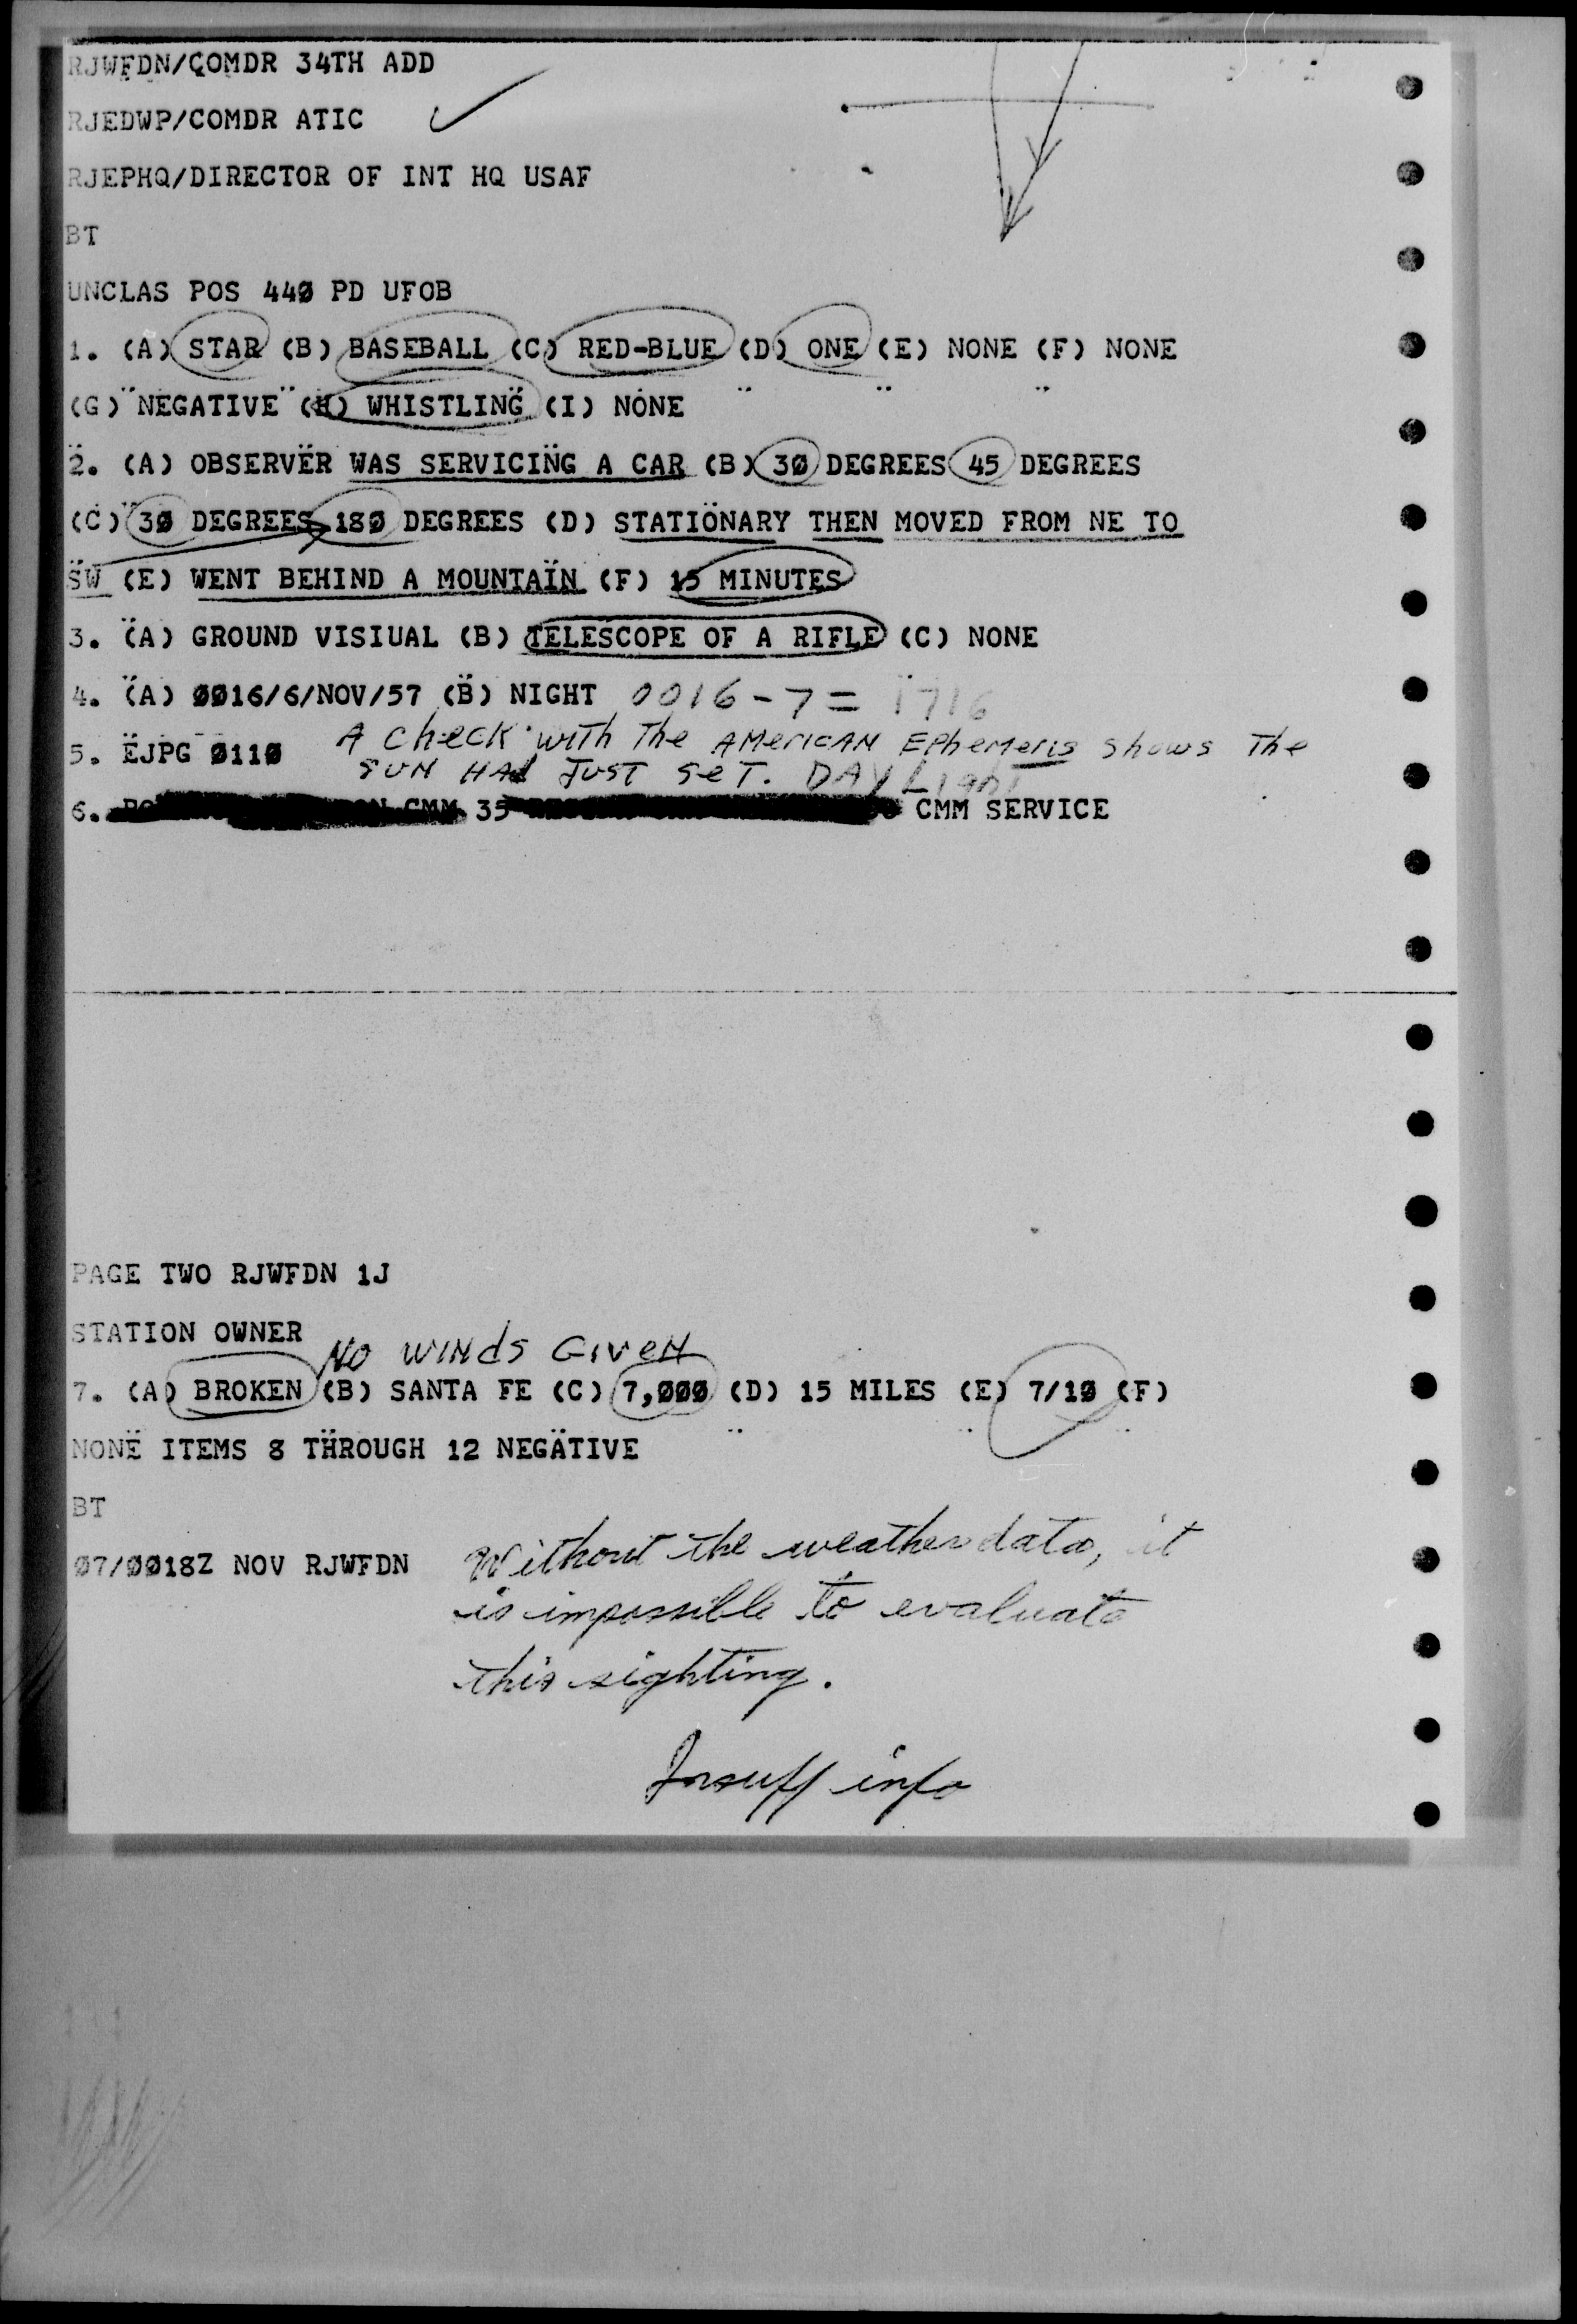 RJWFDN/COMDR 34TH ADD
RJEDWP/COMDR ATIC
RJEPHQ/DIRECTOR OF INT HQ USAF
BT
UNCLAS POS 440 PD UFOB
1. (A) STAR (B) BASEBALL (C) RED-BLUE (D) ONE (E) NONE (F) NONE
(G) "NEGATIVE" (H) WHISTLING (I) NONE
2. (A) OBSERVER WAS SERVICING A CAR (B) 30 DEGREES 45 DEGREES
(C) 30 DEGREES 180 DEGREES (D) STATIONARY THEN MOVED FROM NE TO
SW (E) WENT BEHIND A MOUNTAIN (F) 15 MINUTES
3. (A) GROUND VISIUAL (B) TELESCOPE OF A RIFLE (C) NONE
4. (A) 0016/6/NOV/57 (B) NIGHT 0016-7= 1716
A check with The AMERICAN EPhemeris shows The
5. EJPG 0110
SUN HAd JUST SeT. DAY Light
6. CMM 35 CMM SERVICE
PAGE TWO RJWFDN 1J
STATION OWNER
NO WINdS GIVEN
7. (A) BROKEN (B) SANTA FE (C) 7,000 (D) 15 MILES (E) 7/10 (F)
NONE ITEMS 8 THROUGH 12 NEGATIVE
BT
07/0018Z NOV RJWFDN
Without the weather data, it
is impossible to evaluate
this sighting.
Insuff info